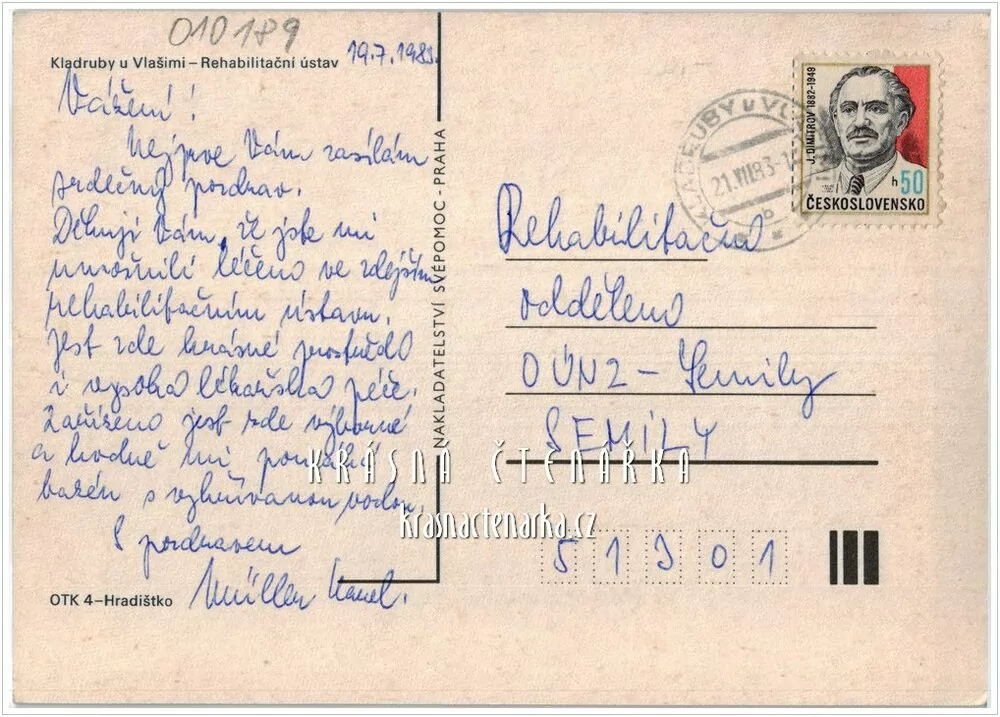 010189
19.7.1983.
Kladruby u Vlašimi – Rehabilitační ústav
Vážení!
Nejprve Vám zasílám
srdečný pozdrav.
Děkuji Vám, že jste mi
umožnili léčení ve zdejším
rehabilitačním ústavu.
Jest zde krásné prostředí
i vysoká lékařská péče.
Zařízeno jest zde výborně
a hodně mi pomáhá
bazén s vyhřívanou vodou.
S pozdravem
Müller Karel.
OTK 4–Hradištko
NAKLADATELSTVÍ SVÉPOMOC - PRAHA
KLADRUBY u VL
21.VII.83-1
J. DIMITROV 1882-1949
h 50
ČESKOSLOVENSKO
Rehabilitační
oddělení
OÚNZ – Semily
SEMILY
51301
KRÁSNÁ ČTENÁŘKA
krasnactenarka.cz